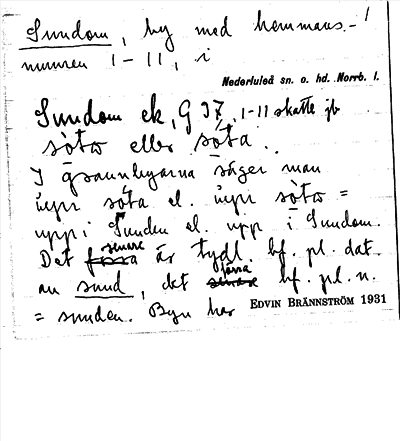 Sundom, by med hemmans-
numren 1-11, i
Nederluleå sn. o. hd. Norrb. l.
Sundom ek, G 37, 1-11 skatte jb
sòtɷ eller sòta.
I grannbyarna säger man
ùpi sòta el. ùpi sòtɷ =
uppi Sunden el. upp i Sundom.
Det senare är tydl. bf. pl. dat.
av sund, det förra bf. pl. n.
= sunden. Byn har
EDVIN BRÄNNSTRÖM 1931